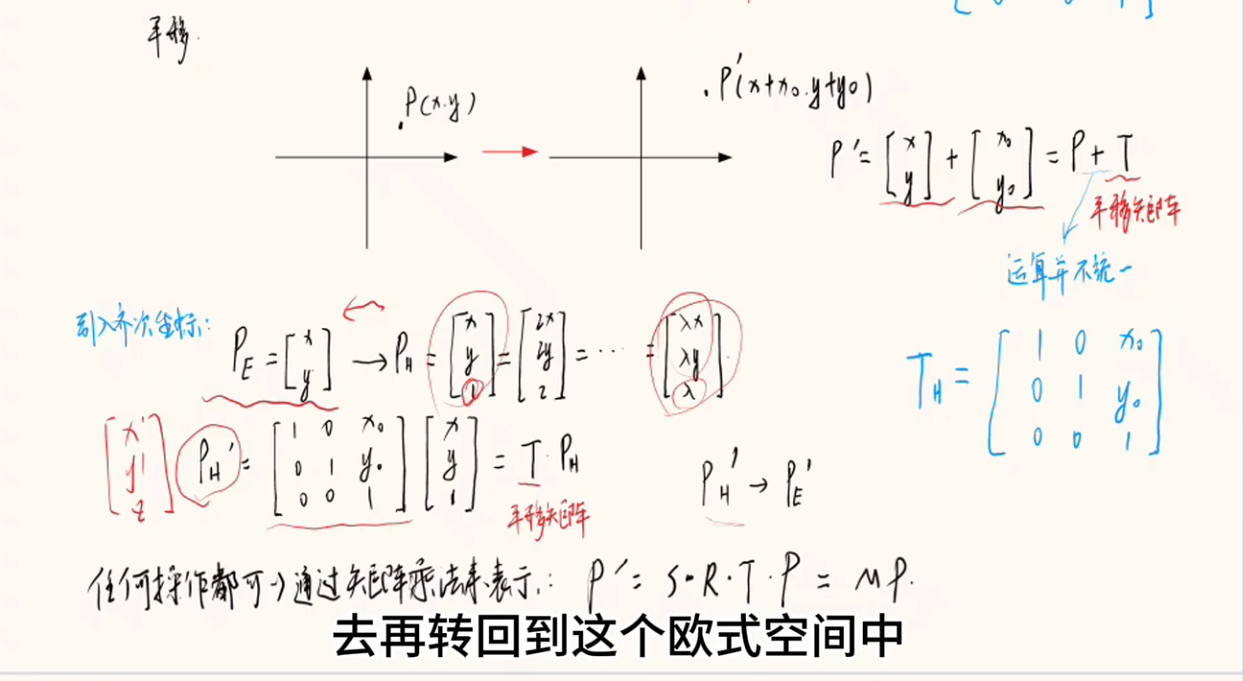 [0 0 1]
平移.
P(x.y)
P'(x+x₀.y+y₀)
P' = [x y] + [x₀ y₀] = P + T
平移矩阵
运算并不统一
引入齐次坐标:
P_E = [x y] → P_H = [x y 1] = [2x 2y 2] = ··· = [λx λy λ]
T_H = [1 0 x₀
0 1 y₀
0 0 1]
[x' y' z] P_H' = [1 0 x₀
0 1 y₀
0 0 1] [x y 1] = T · P_H
平移矩阵
P_H' → P_E'
任何操作都可以通过矩阵乘法来表示: P' = S·R·T·P = MP.
去再转回到这个欧式空间中